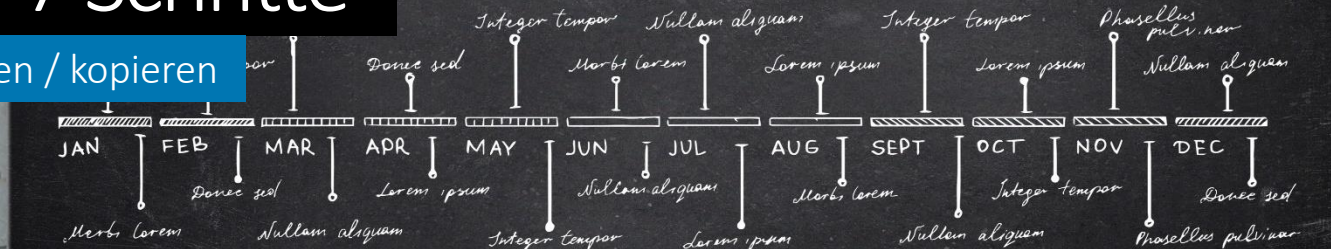 / Schritte
en / kopieren
Integer tempor
Nullam aliquam
Integer tempor
Phasellus
pulvinar
Donec sed
Morbi lorem
Lorem ipsum
Lorem ipsum
Nullam aliquam
JAN FEB MAR APR MAY JUN JUL AUG SEPT OCT NOV DEC
Donec sed
Lorem ipsum
Nullam aliquam
Morbi lorem
Integer tempor
Donec sed
Morbi lorem
Nullam aliquam
Integer tempor
Lorem ipsum
Nullam aliquam
Phasellus pulvinar